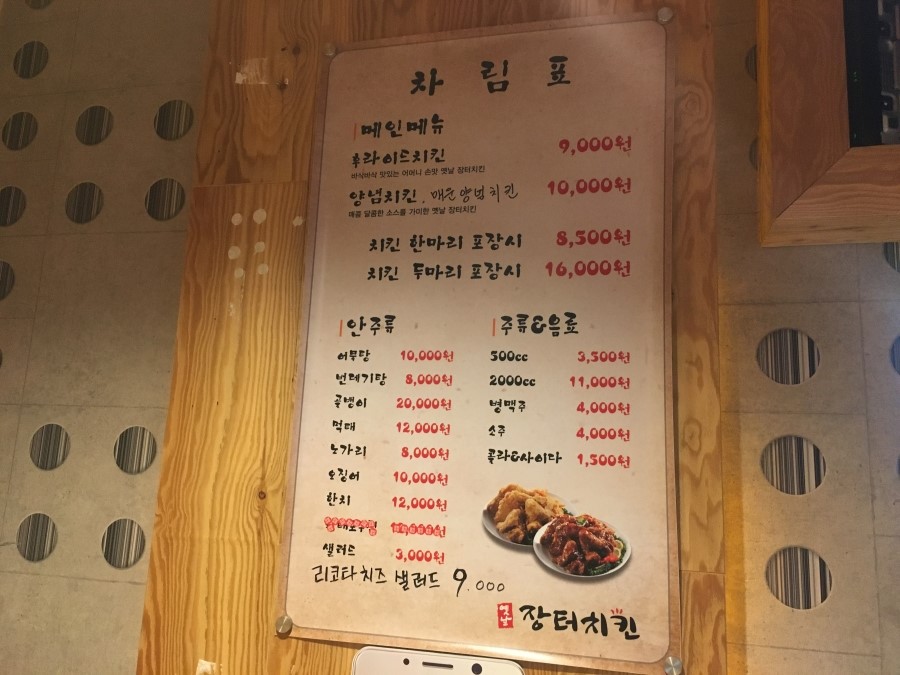 차 림 표
메인메뉴
후라이드치킨 9,000원
바삭바삭 맛있는 어머니 손맛 옛날 장터치킨
양념치킨, 매운양념치킨 10,000원
매콤 달콤한 소스를 가미한 옛날 장터치킨
치킨 한마리 포장시 8,500원
치킨 두마리 포장시 16,000원
안주류
어묵탕 10,000원
번데기탕 8,000원
골뱅이 20,000원
먹태 12,000원
노가리 8,000원
오징어 10,000원
한치 12,000원
샐러드 3,000원
리코타치즈 샐러드 9.000
주류&음료
500cc 3,500원
2000cc 11,000원
병맥주 4,000원
소주 4,000원
콜라&사이다 1,500원
옛날 장터치킨